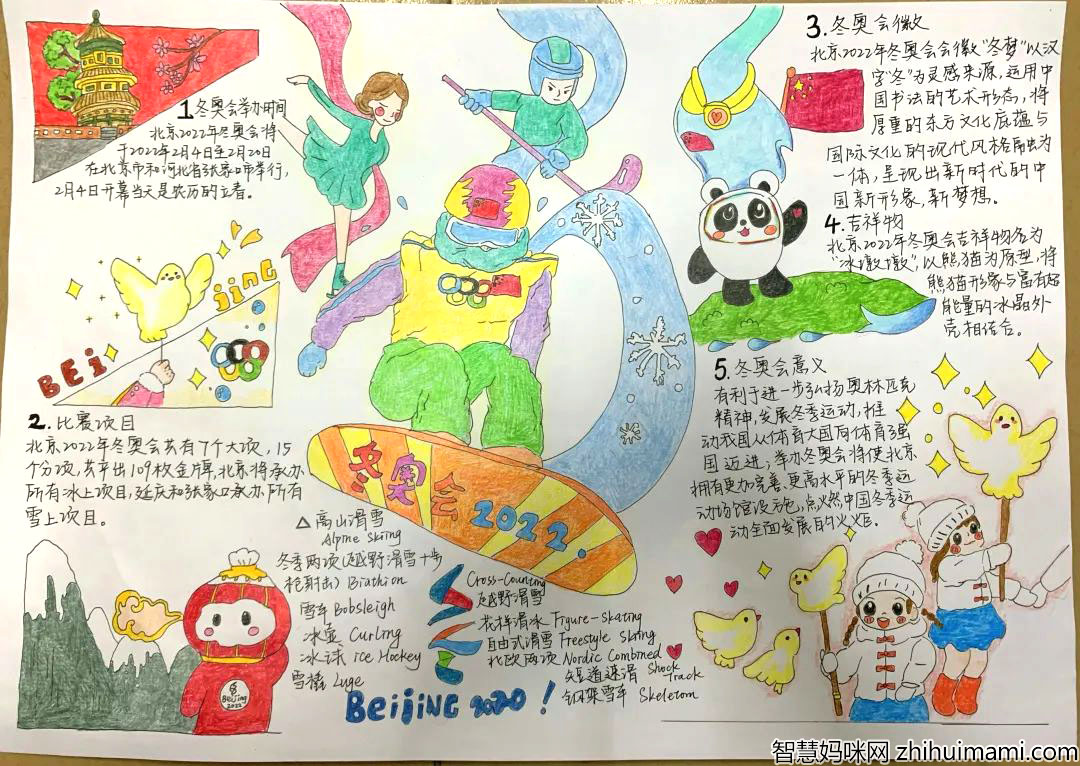 1.冬奥会举办时间
北京2022年冬奥会将
于2022年2月4日至2月20日
在北京市和河北省张家口市举行,
2月4日开幕当天是农历的立春。
BEi
jinG
2. 比赛项目
北京2022年冬奥会共有7个大项,15
个分项,共产出109枚金牌,北京将承办
所有冰上项目,延庆和张家口承办所有
雪上项目。
3.冬奥会会徽
北京2022年冬奥会会徽“冬梦”以汉
字“冬”为灵感来源,运用中
国书法的艺术形态,将
厚重的东方文化底蕴与
国际文化的现代风格融为
一体,呈现出新时代的中
国新形象,新梦想。
4.吉祥物
北京2022年冬奥会吉祥物名为
“冰墩墩”,以熊猫为原型,将
熊猫形象与富有超
能量的冰晶外
壳相结合。
5.冬奥会意义
有利于进一步弘扬奥林匹克
精神,发展冬季运动,推
动我国从体育大国向体育强
国迈进;举办冬奥会将使北京
拥有更加完善、更高水平的冬季运
动场馆设施,点燃中国冬季运
动全面发展的火炬。
冬奥会2022.
高山滑雪
Alpine Skiing
冬季两项(越野滑雪+步
枪射击) Biathlon
雪车 Bobsleigh
冰壶 Curling
冰球 ice Hockey
雪橇 Luge
Cross-Counting
越野滑雪
花样滑冰 Figure-Skating
自由式滑雪 Freestyle Skiing
北欧两项 Nordic Combined
短道速滑 Shock
Track
钢架雪车 Skeletom
Beijing
2022
BeijinG 2020!
智慧妈咪网 zhihuimami.com